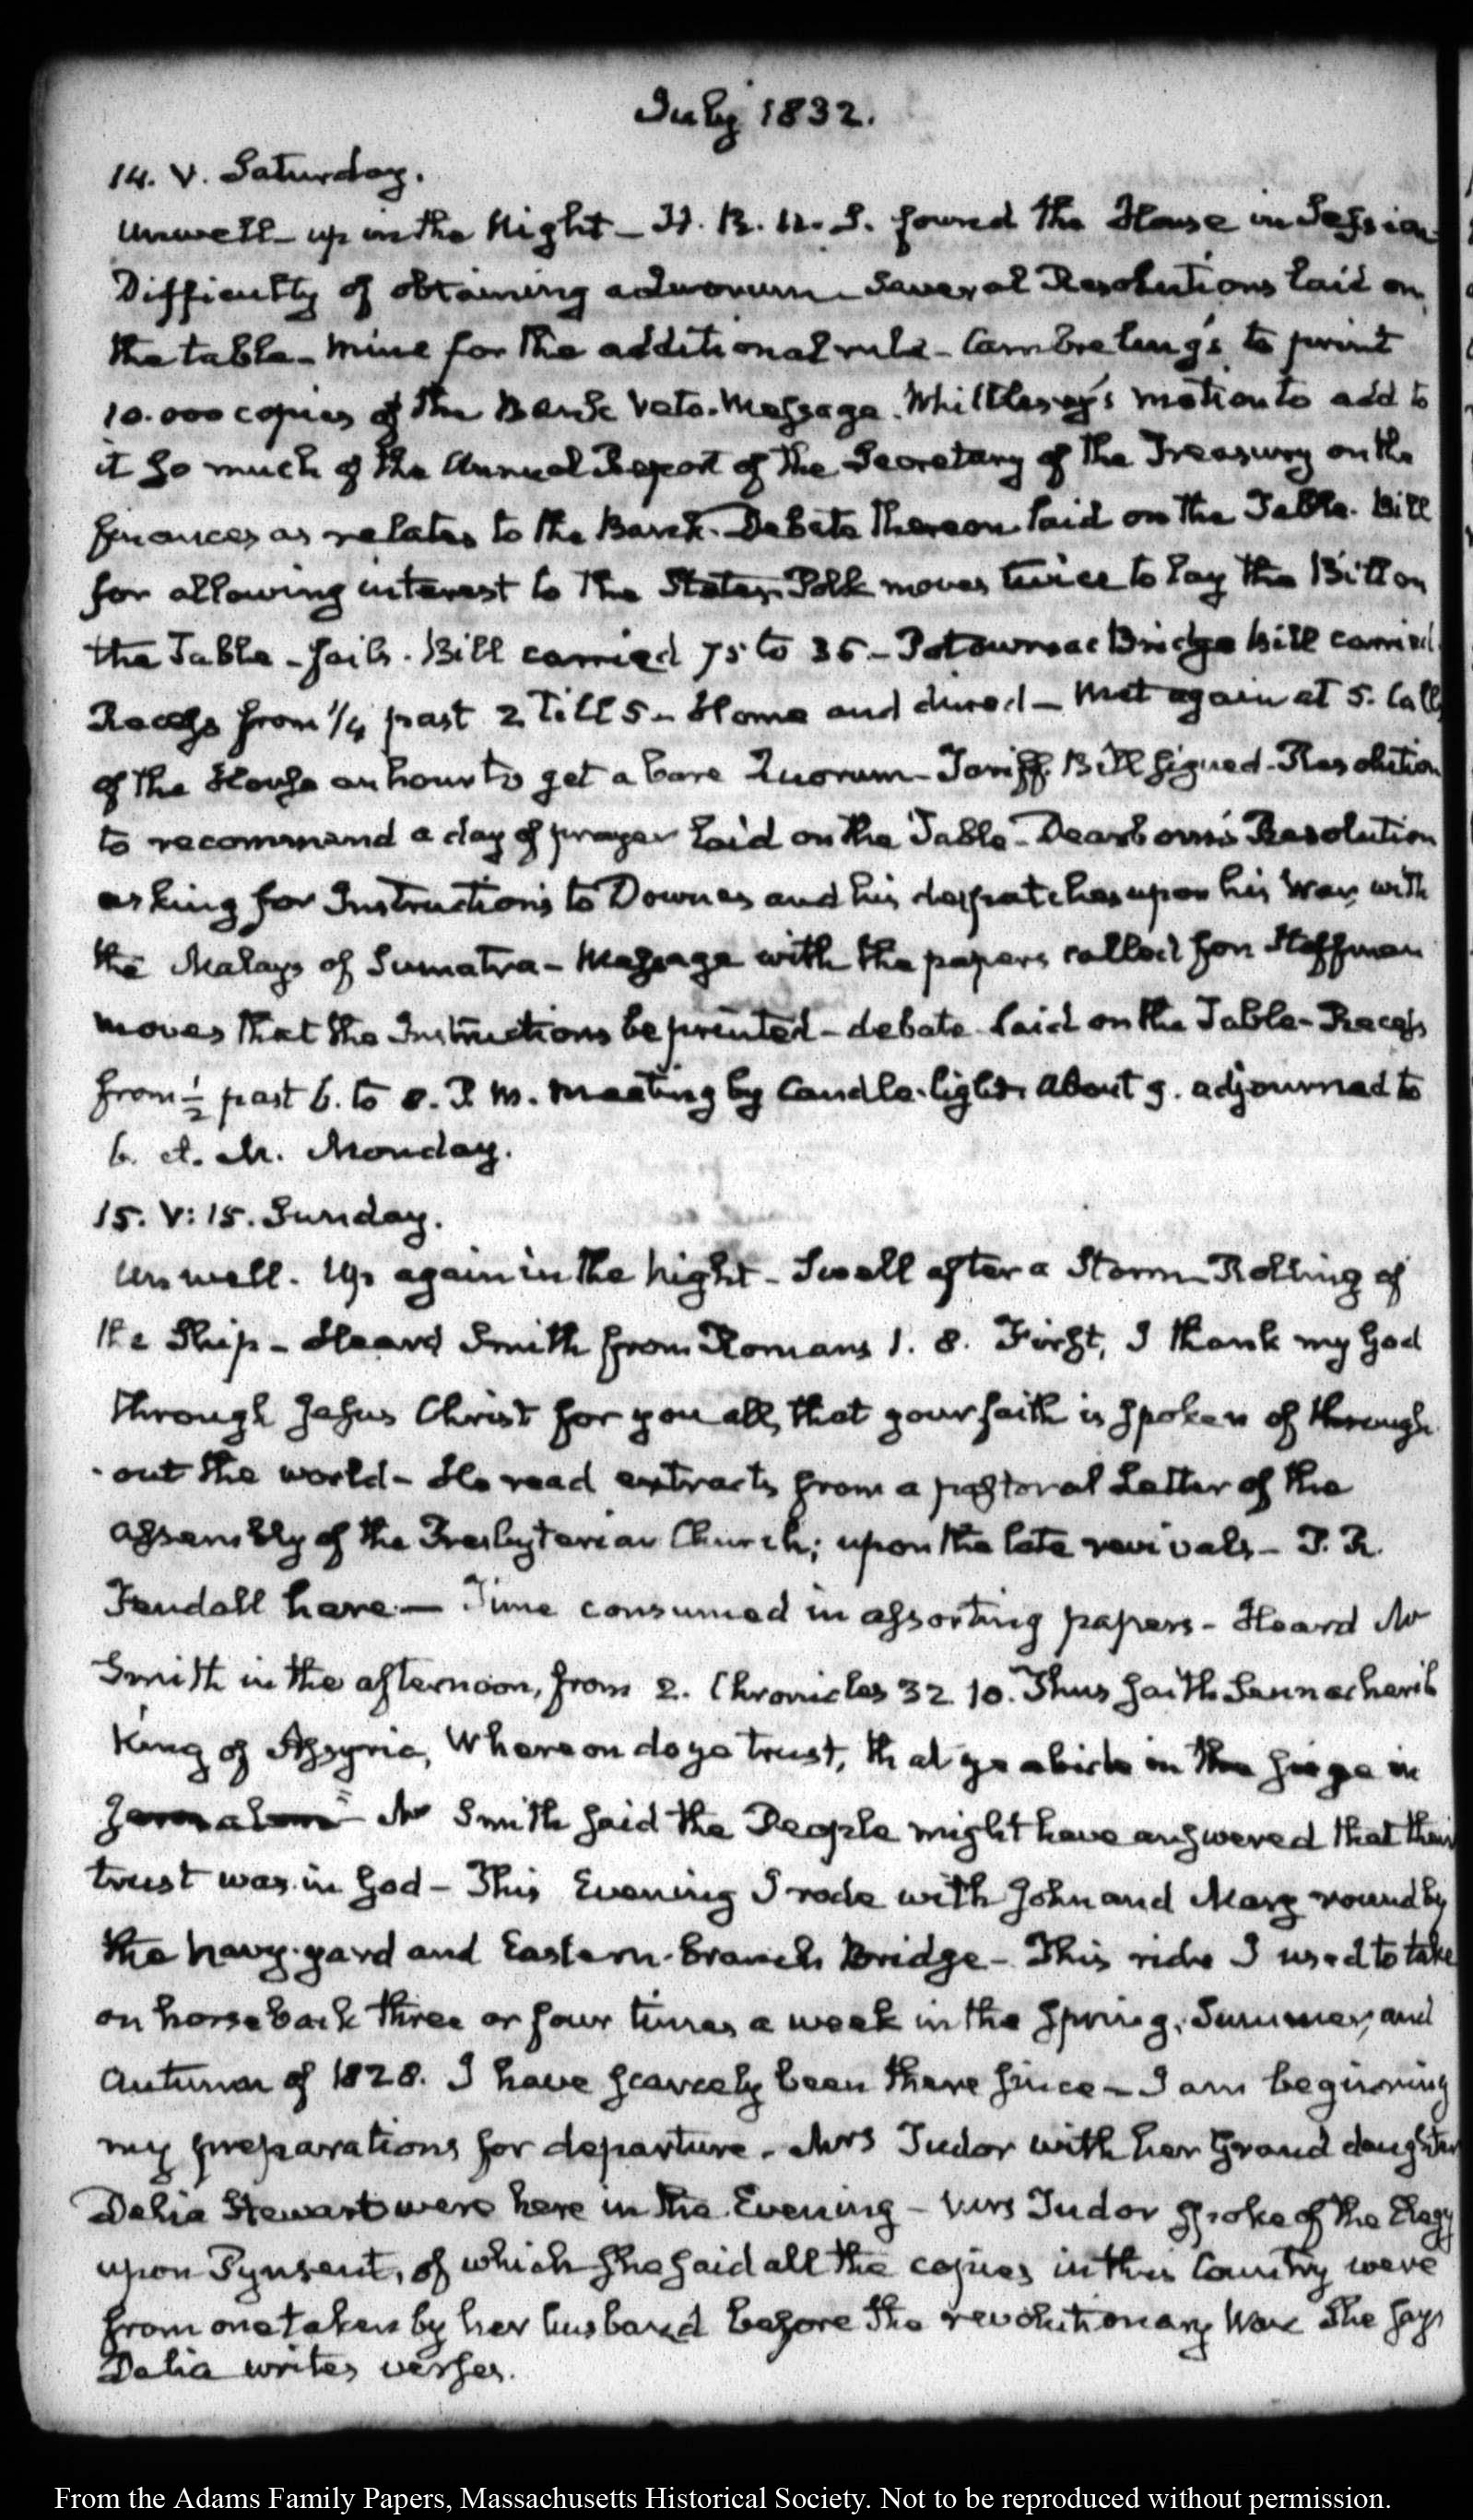 July 1832.
14. V. Saturday.
Unwell – up in the Night – H. R. U. S. found the House in Session
Difficulty of obtaining a Quorum – Several Resolutions laid on
the table – Mine for the additional rule – Cambreleng's to print
10.000 copies of the Bank Veto-Message. Whittlesey's motion to add to
it so much of the Annual Report of the Secretary of the Treasury on the
finances as relates to the Bank. Debate thereon laid on the Table. Bill
for allowing interest to the States – Polk moves twice to lay the Bill on
the Table – fails. Bill carried 75 to 36 – Potowmac Bridge bill carried
Recess from 1/4 past 2 till 5 – Home and dined – Met again at 5. Call
of the House an hour to get a bare Quorum – Tariff Bill signed – Resolution
to recommend a day of prayer laid on the Table – Dearborn's Resolution
asking for Instructions to Downes and his despatches upon his War with
the Malays of Sumatra – Message with the papers called for Hoffman
moves that the Instructions be printed – debate – laid on the Table – Recess
from 1/2 past 6. to 8. P. M. Meeting by Candle-light. About 9. adjourned to
6. A. M. Monday.
15. V: 15. Sunday.
Unwell. Up again in the night – Swell after a Storm – Rolling of
the Ship – Heard Smith from Romans 1. 8. First, I thank my God
through Jesus Christ for you all, that your faith is spoken of through
-out the world – He read extracts from a pastoral Letter of the
assembly of the Presbyterian Church; upon the late revivals – P. R.
Fendall here – Time consumed in assorting papers – Heard Mr
Smith in the afternoon, from 2. Chronicles 32 10. Thus saith Sennacherib
King of Assyria, Whereon do ye trust, that ye abide in the siege in
Jerusalem – Mr Smith said the People might have answered that their
trust was in God – This Evening I rode with John and Mary round by
the navy-yard and Eastern-branch Bridge – This ride I used to take
on horseback three or four times a week in the Spring, Summer, and
Autumn of 1828. I have scarcely been there since – I am beginning
my preparations for departure – Mrs Tudor with her Grand daughter
Delia Stewart were here in the Evening – Mrs Tudor spoke of the Elegy
upon Pynsent, of which she said all the copies in this Country were
from one taken by her husband before the revolutionary War She says
Delia writes verses.
From the Adams Family Papers, Massachusetts Historical Society. Not to be reproduced without permission.